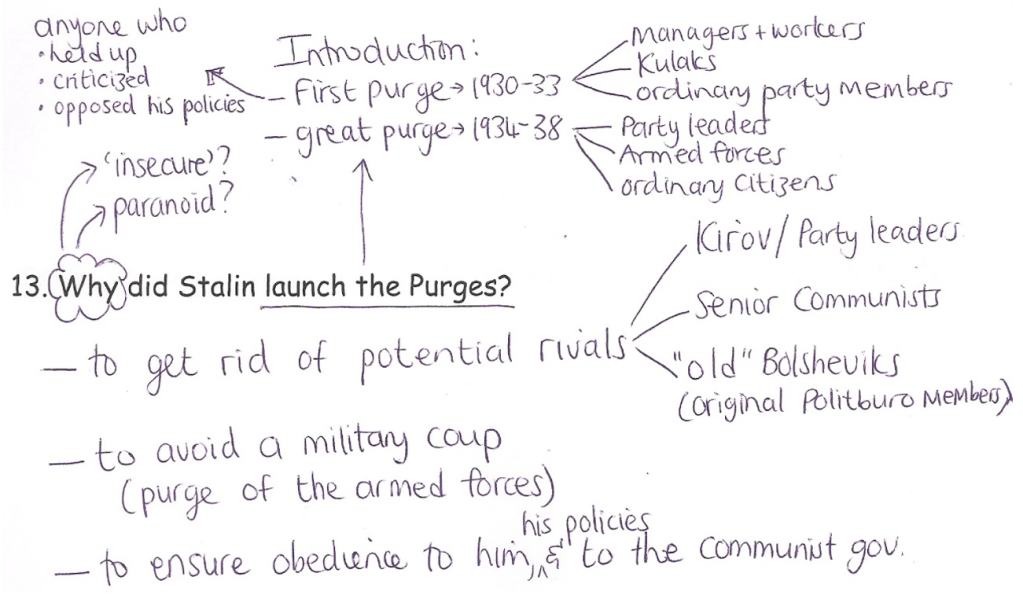 anyone who
• held up
• criticized
• opposed his policies
Introduction:
– First purge → 1930-33
Managers + workers
Kulaks
ordinary party members
– great purge → 1934-38
Party leaders
Armed forces
ordinary citizens
'insecure'?
paranoid?
13. Why did Stalin launch the Purges?
– to get rid of potential rivals
Kirov / Party leaders
Senior Communists
"old" Bolsheviks
(original Politburo Members)
– to avoid a military coup
(purge of the armed forces)
his policies
– to ensure obedience to him, & to the communist gov.